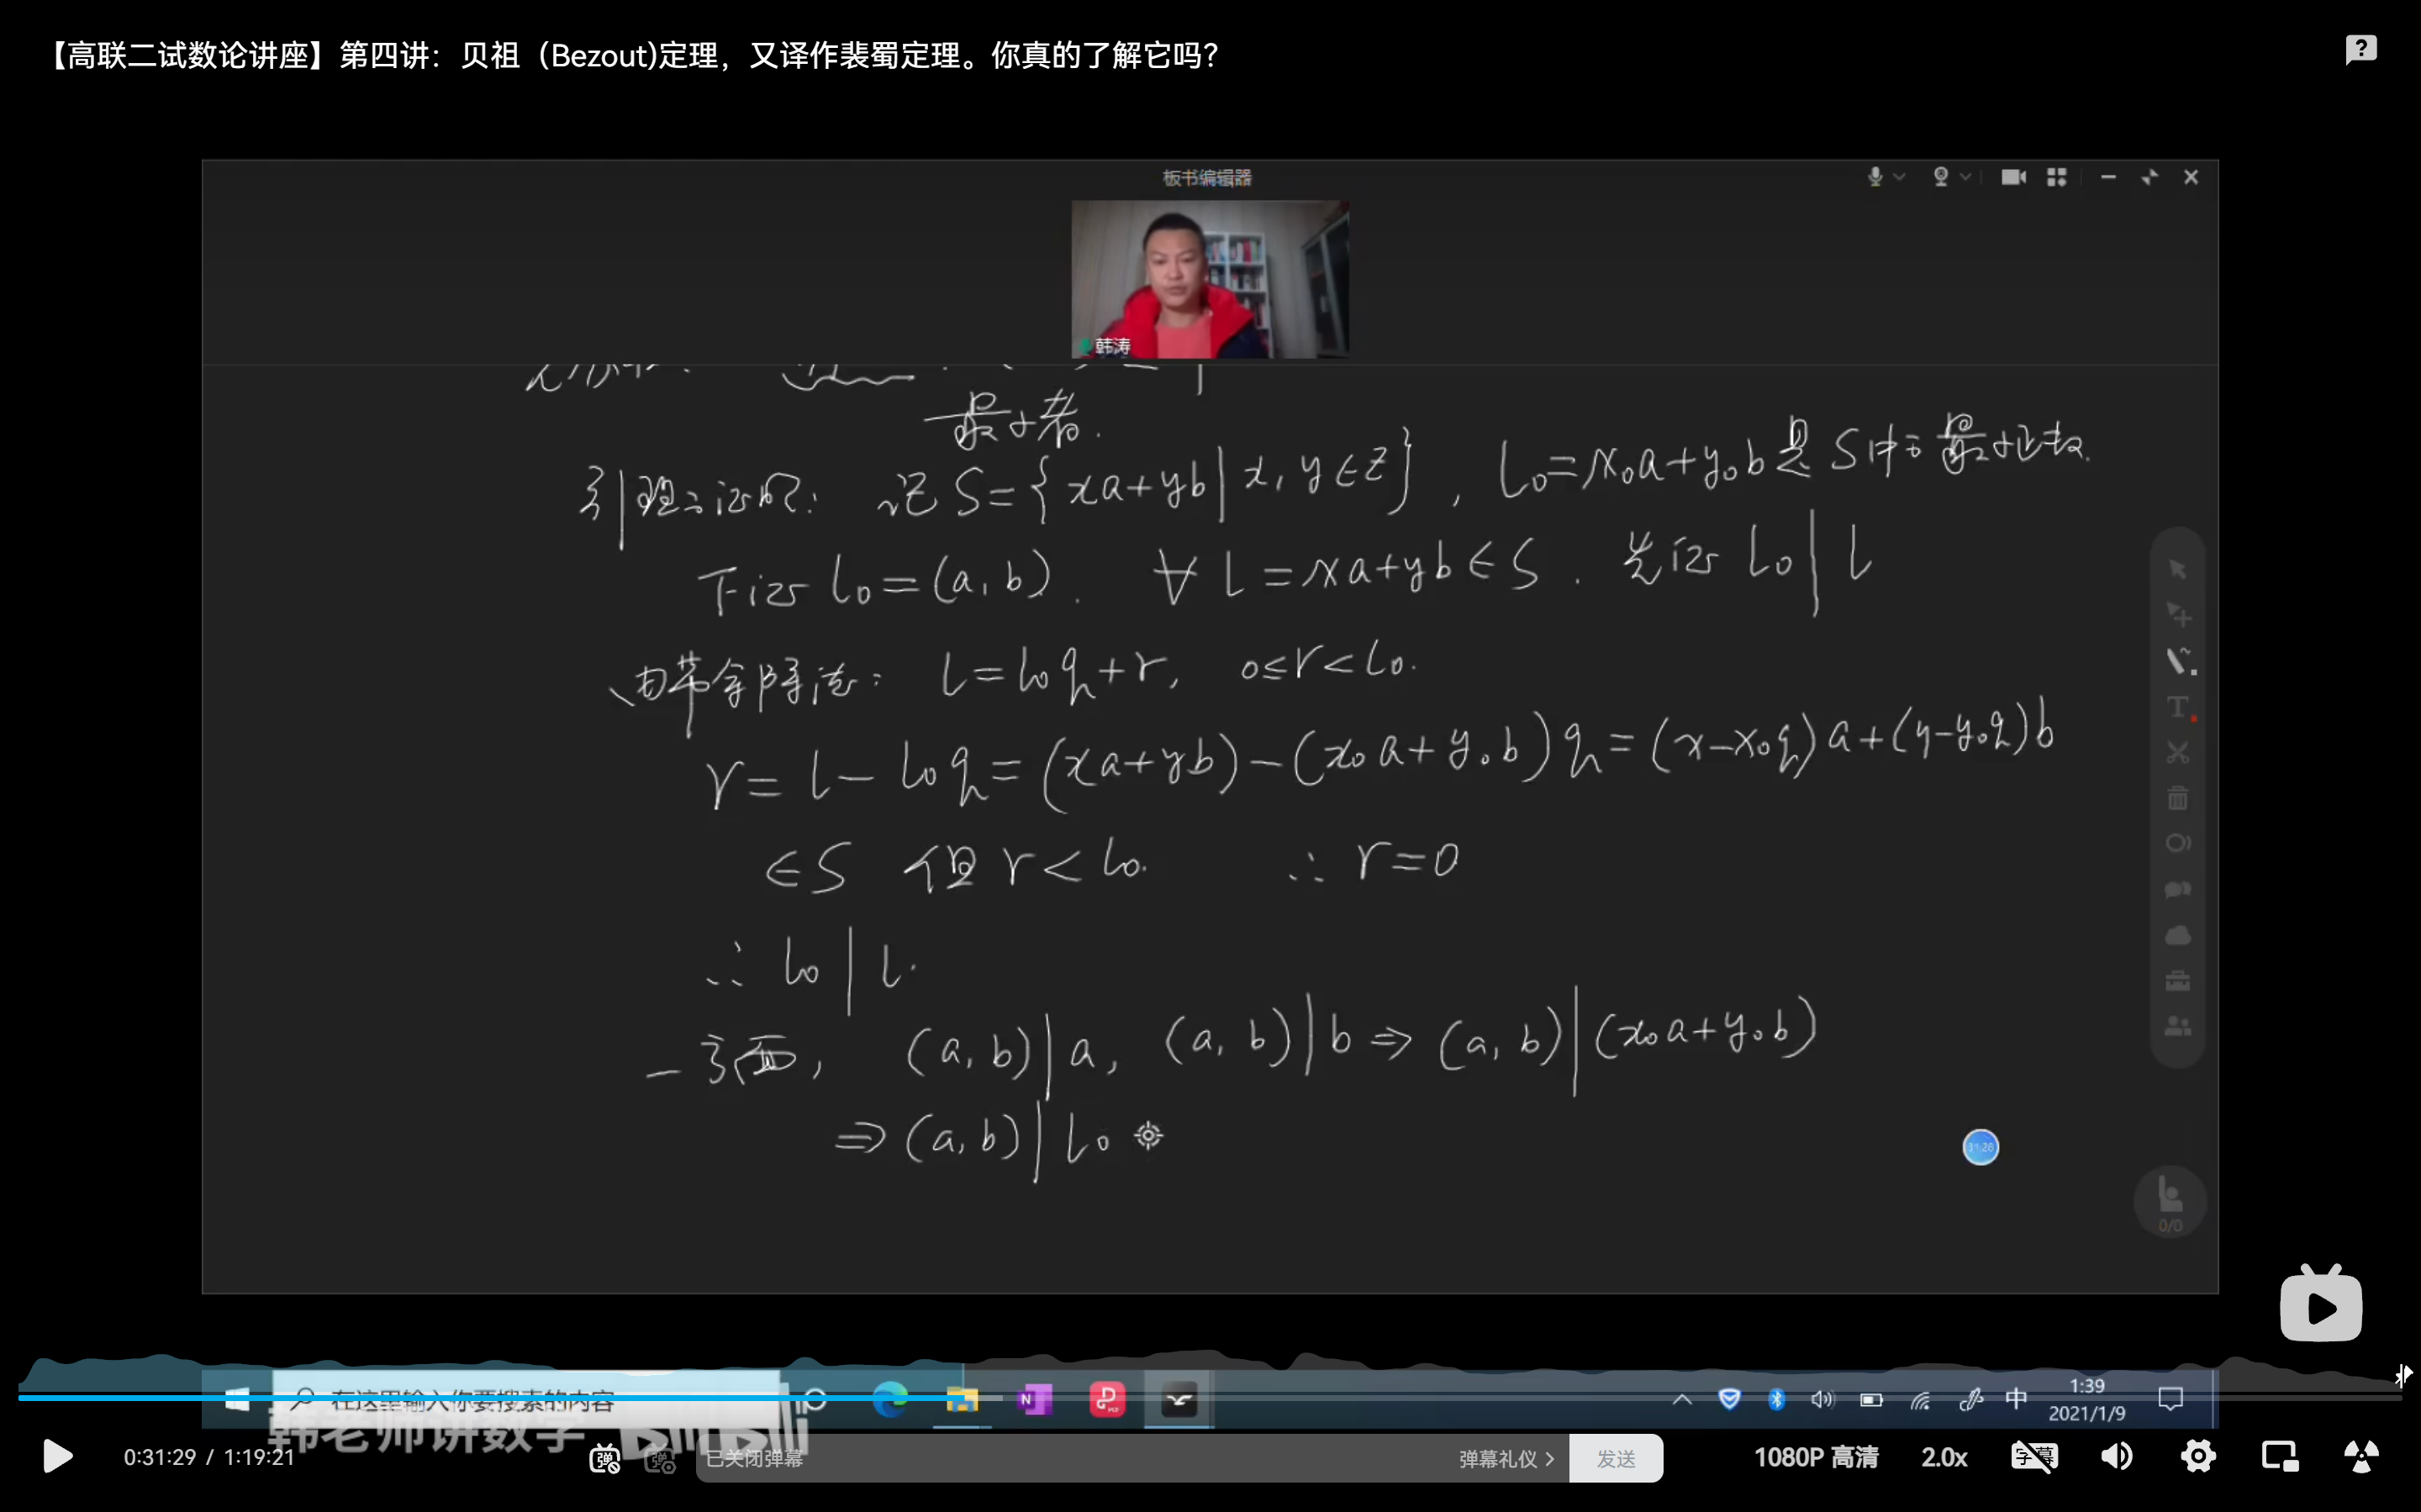 【高联二试数论讲座】第四讲：贝祖（Bezout)定理，又译作裴蜀定理。你真的了解它吗？
板书编辑器
韩涛
最小者.
引理之证明: 记 S={xa+yb|x, y∈Z}, l₀=x₀a+y₀b是S中之最小正数.
下证 l₀=(a, b). ∀ l=xa+yb∈S. 先证 l₀|l
由带余除法: l=l₀q+r, 0≤r<l₀.
r=l-l₀q=(xa+yb)-(x₀a+y₀b)q=(x-x₀q)a+(y-y₀q)b
∈S 但r<l₀. ∴ r=0
∴ l₀|l.
一方面, (a, b)|a, (a, b)|b ⇒ (a, b)|(x₀a+y₀b)
⇒ (a, b)|l₀
31:28
0/0
在这里输入你要搜索的内容
中
1:39
2021/1/9
韩老师讲数学 bilibili
0:31:29 / 1:19:21
弹
弹
已关闭弹幕
弹幕礼仪 >
发送
1080P 高清
2.0x
字幕